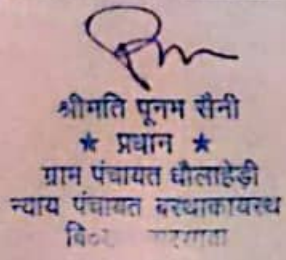 श्रीमति पूनम सैनी
★ प्रधान ★
ग्राम पंचायत धौलाहेड़ी
न्याय पंचायत बरथाकायस्थ